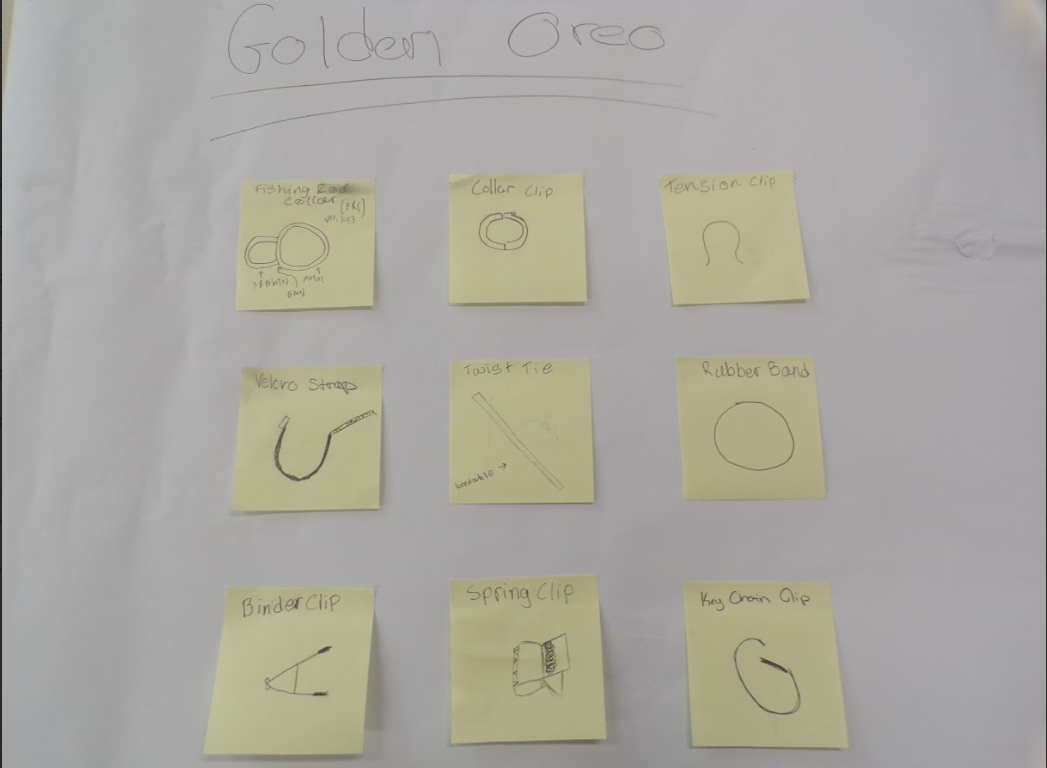 Golden Oreo
Fishing Rod
Collar (FRC)
Collar Clip
Tension Clip
Velcro Strap
Twist Tie
bendable
Rubber Band
Binder Clip
Spring Clip
Key Chain Clip